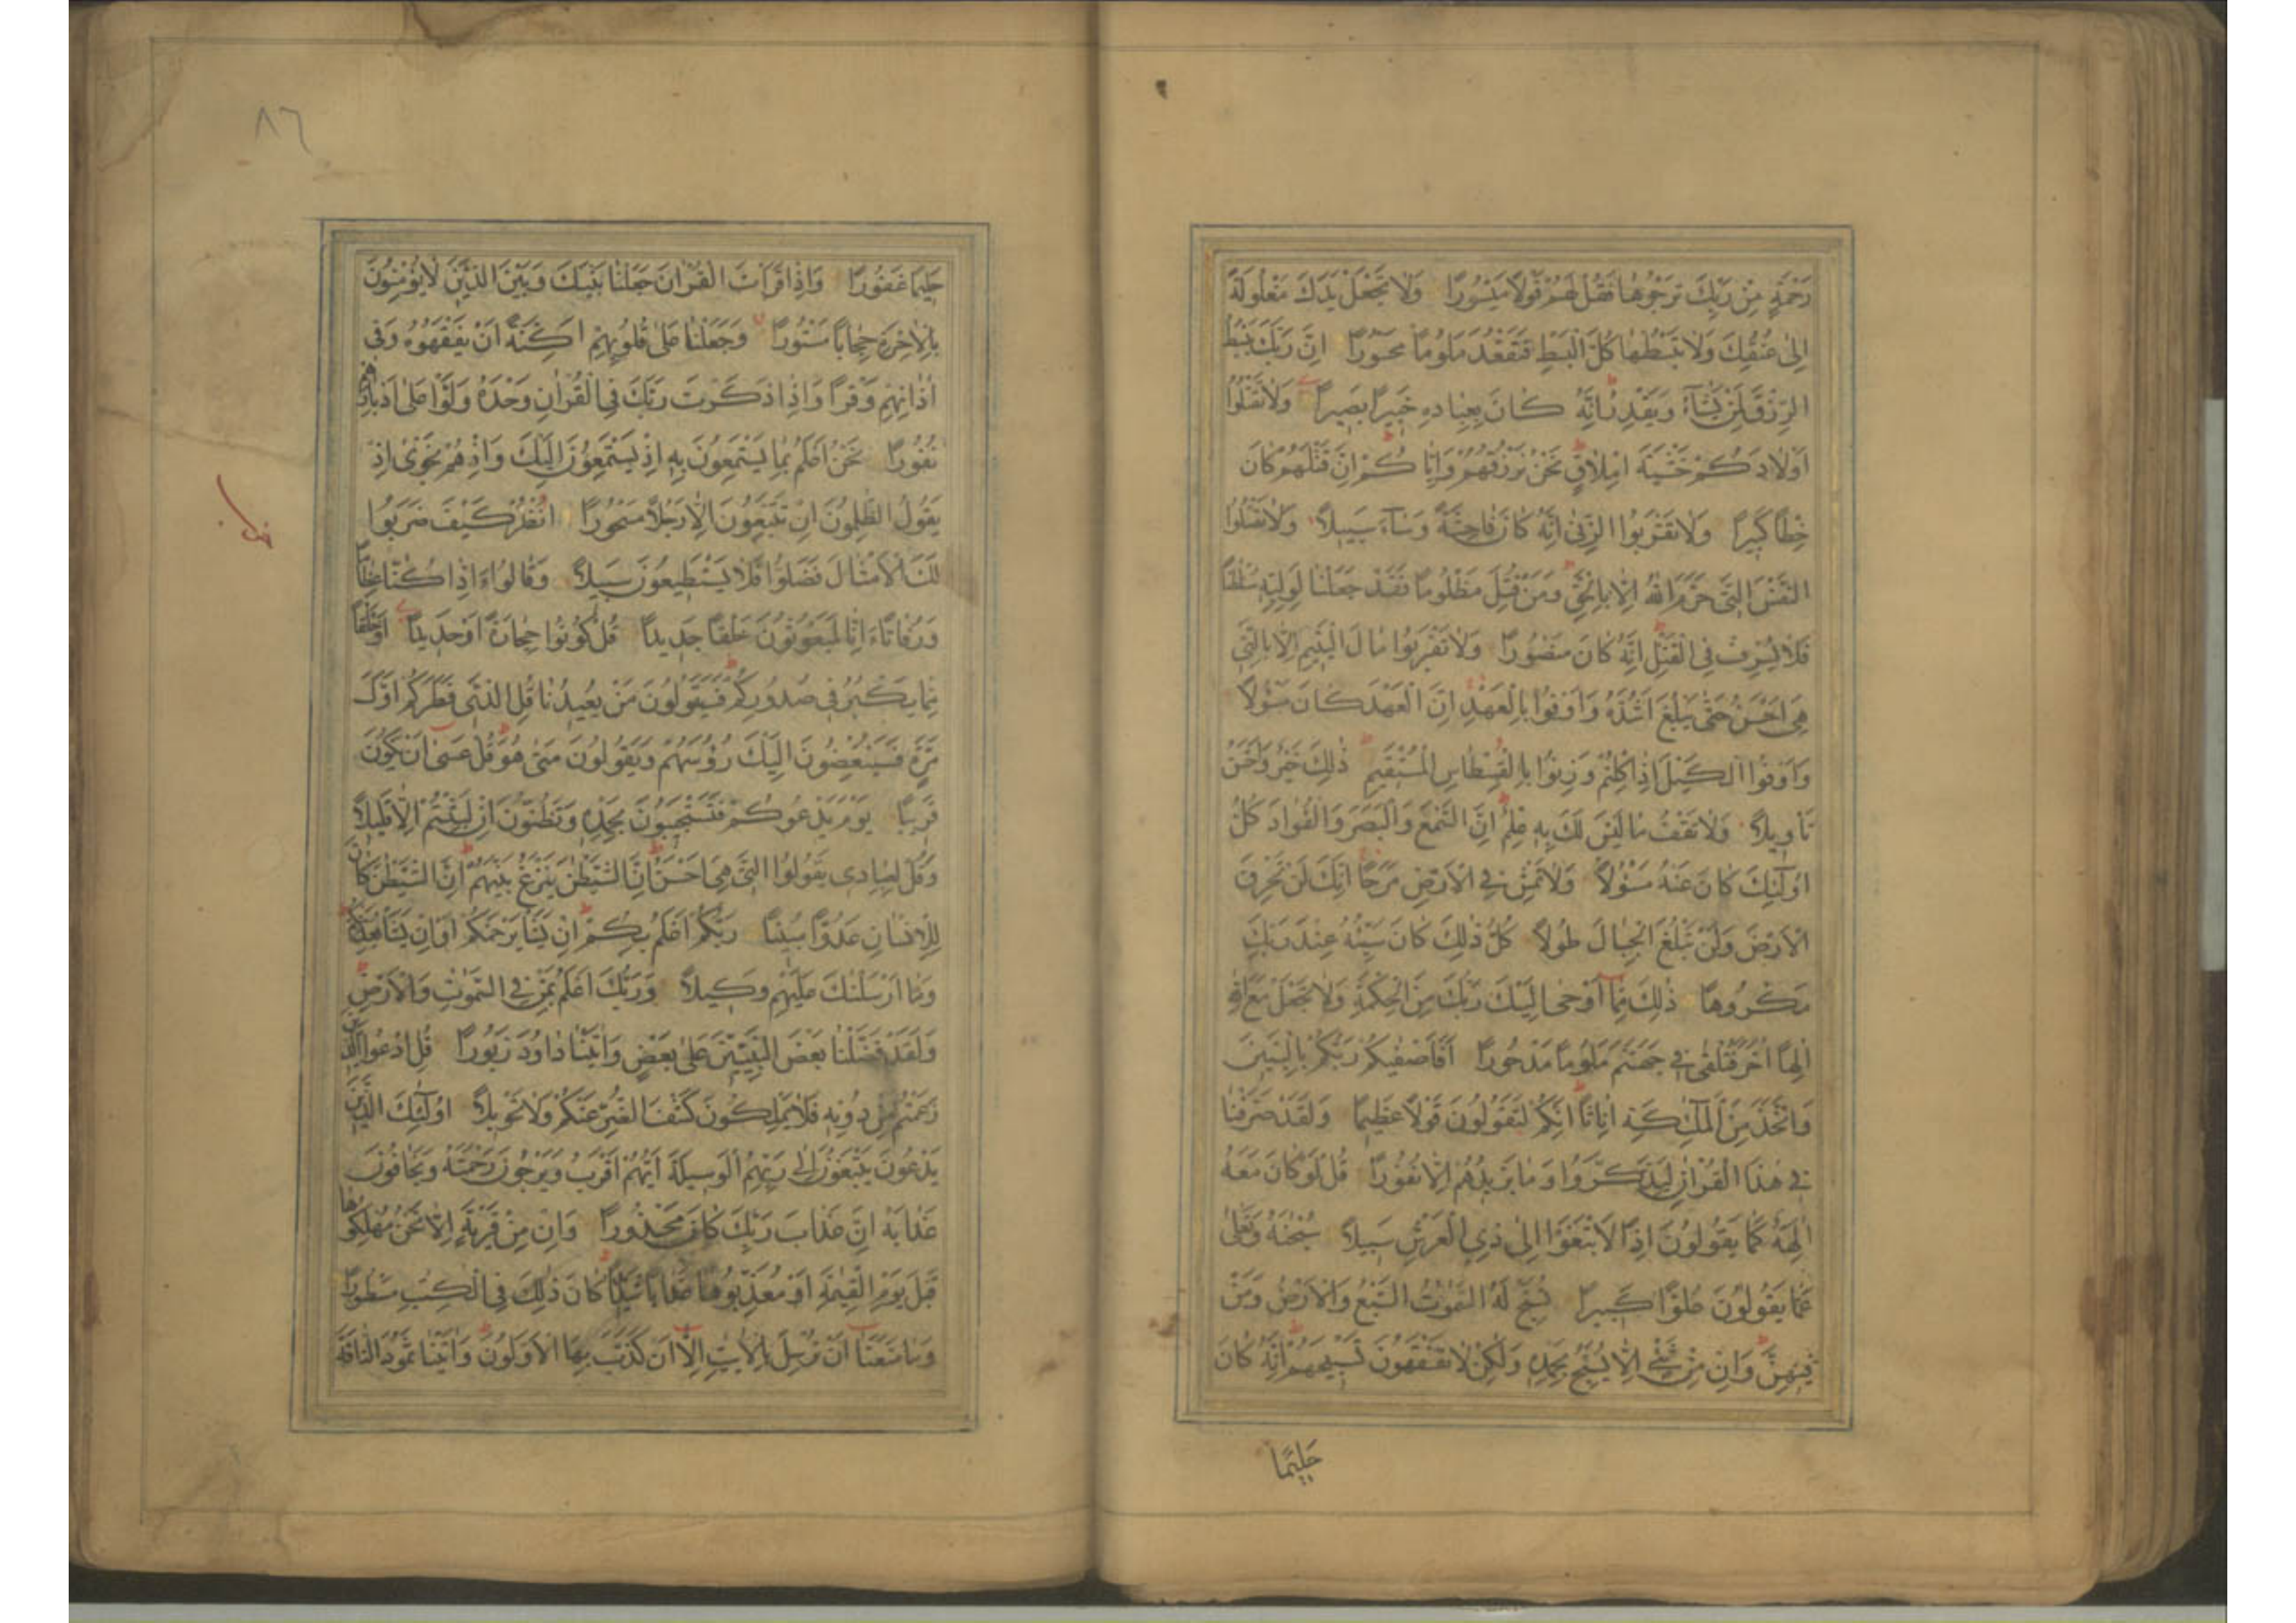 رَحْمَةٍ مِنْ رَبِّكَ تَرْجُوهَا فَقُلْ لَهُمْ قَوْلًا مَيْسُورًا وَلَا تَجْعَلْ يَدَكَ مَغْلُولَةً
اِلٰى عُنُقِكَ وَلَا تَبْسُطْهَا كُلَّ الْبَسْطِ فَتَقْعُدَ مَلُومًا مَحْسُورًا اِنَّ رَبَّكَ يَبْسُطُ
الرِّزْقَ لِمَنْ يَشَآءُ وَيَقْدِرُ اِنَّهُ كَانَ بِعِبَادِهِ خَبِيرًا بَصِيرًا وَلَا تَقْتُلُوا
اَوْلَادَكُمْ خَشْيَةَ اِمْلَاقٍ نَحْنُ نَرْزُقُهُمْ وَاِيَّاكُمْ اِنَّ قَتْلَهُمْ كَانَ
خِطْأً كَبِيرًا وَلَا تَقْرَبُوا الزِّنٰى اِنَّهُ كَانَ فَاحِشَةً وَسَآءَ سَبِيلًا وَلَا تَقْتُلُوا
النَّفْسَ الَّتِي حَرَّمَ اللهُ اِلَّا بِالْحَقِّ وَمَنْ قُتِلَ مَظْلُومًا فَقَدْ جَعَلْنَا لِوَلِيِّهِ سُلْطٰنًا
فَلَا يُسْرِفْ فِي الْقَتْلِ اِنَّهُ كَانَ مَنْصُورًا وَلَا تَقْرَبُوا مَالَ الْيَتِيمِ اِلَّا بِالَّتِي
هِيَ اَحْسَنُ حَتّٰى يَبْلُغَ اَشُدَّهُ وَاَوْفُوا بِالْعَهْدِ اِنَّ الْعَهْدَ كَانَ مَسْؤُلًا
وَاَوْفُوا الْكَيْلَ اِذَا كِلْتُمْ وَزِنُوا بِالْقِسْطَاسِ الْمُسْتَقِيمِ ذٰلِكَ خَيْرٌ وَاَحْسَنُ
تَأْوِيلًا وَلَا تَقْفُ مَا لَيْسَ لَكَ بِهِ عِلْمٌ اِنَّ السَّمْعَ وَالْبَصَرَ وَالْفُؤَادَ كُلُّ
اُولٰٓئِكَ كَانَ عَنْهُ مَسْؤُلًا وَلَا تَمْشِ فِي الْاَرْضِ مَرَحًا اِنَّكَ لَنْ تَخْرِقَ
الْاَرْضَ وَلَنْ تَبْلُغَ الْجِبَالَ طُولًا كُلُّ ذٰلِكَ كَانَ سَيِّئُهُ عِنْدَ رَبِّكَ
مَكْرُوهًا ذٰلِكَ مِمَّا اَوْحٰى اِلَيْكَ رَبُّكَ مِنَ الْحِكْمَةِ وَلَا تَجْعَلْ مَعَ اللهِ
اِلٰهًا اٰخَرَ فَتُلْقٰى فِي جَهَنَّمَ مَلُومًا مَدْحُورًا اَفَاَصْفٰيكُمْ رَبُّكُمْ بِالْبَنِينَ
وَاتَّخَذَ مِنَ الْمَلٰٓئِكَةِ اِنَاثًا اِنَّكُمْ لَتَقُولُونَ قَوْلًا عَظِيمًا وَلَقَدْ صَرَّفْنَا
فِي هٰذَا الْقُرْاٰنِ لِيَذَّكَّرُوا وَمَا يَزِيدُهُمْ اِلَّا نُفُورًا قُلْ لَوْ كَانَ مَعَهُ
اٰلِهَةٌ كَمَا يَقُولُونَ اِذًا لَابْتَغَوْا اِلٰى ذِي الْعَرْشِ سَبِيلًا سُبْحٰنَهُ وَتَعٰلٰى
عَمَّا يَقُولُونَ عُلُوًّا كَبِيرًا تُسَبِّحُ لَهُ السَّمٰوٰتُ السَّبْعُ وَالْاَرْضُ وَمَنْ
فِيهِنَّ وَاِنْ مِنْ شَيْءٍ اِلَّا يُسَبِّحُ بِحَمْدِهِ وَلٰكِنْ لَا تَفْقَهُونَ تَسْبِيحَهُمْ اِنَّهُ كَانَ
حَلِيمًا
٨٦
حَلِيمًا غَفُورًا وَاِذَا قَرَاْتَ الْقُرْاٰنَ جَعَلْنَا بَيْنَكَ وَبَيْنَ الَّذِينَ لَا يُؤْمِنُونَ
بِالْاٰخِرَةِ حِجَابًا مَسْتُورًا وَجَعَلْنَا عَلٰى قُلُوبِهِمْ اَكِنَّةً اَنْ يَفْقَهُوهُ وَفِي
اٰذَانِهِمْ وَقْرًا وَاِذَا ذَكَرْتَ رَبَّكَ فِي الْقُرْاٰنِ وَحْدَهُ وَلَّوْا عَلٰى اَدْبَارِهِمْ
نُفُورًا نَحْنُ اَعْلَمُ بِمَا يَسْتَمِعُونَ بِهِ اِذْ يَسْتَمِعُونَ اِلَيْكَ وَاِذْ هُمْ نَجْوٰى اِذْ
يَقُولُ الظّٰلِمُونَ اِنْ تَتَّبِعُونَ اِلَّا رَجُلًا مَسْحُورًا اُنْظُرْ كَيْفَ ضَرَبُوا
لَكَ الْاَمْثَالَ فَضَلُّوا فَلَا يَسْتَطِيعُونَ سَبِيلًا وَقَالُوا ءَاِذَا كُنَّا عِظَامًا
وَرُفَاتًا ءَاِنَّا لَمَبْعُوثُونَ خَلْقًا جَدِيدًا قُلْ كُونُوا حِجَارَةً اَوْ حَدِيدًا اَوْ خَلْقًا
مِمَّا يَكْبُرُ فِي صُدُورِكُمْ فَسَيَقُولُونَ مَنْ يُعِيدُنَا قُلِ الَّذِي فَطَرَكُمْ اَوَّلَ
مَرَّةٍ فَسَيُنْغِضُونَ اِلَيْكَ رُؤُسَهُمْ وَيَقُولُونَ مَتٰى هُوَ قُلْ عَسٰى اَنْ يَكُونَ
قَرِيبًا يَوْمَ يَدْعُوكُمْ فَتَسْتَجِيبُونَ بِحَمْدِهِ وَتَظُنُّونَ اِنْ لَبِثْتُمْ اِلَّا قَلِيلًا
وَقُلْ لِعِبَادِي يَقُولُوا الَّتِي هِيَ اَحْسَنُ اِنَّ الشَّيْطٰنَ يَنْزَغُ بَيْنَهُمْ اِنَّ الشَّيْطٰنَ كَانَ
لِلْاِنْسَانِ عَدُوًّا مُبِينًا رَبُّكُمْ اَعْلَمُ بِكُمْ اِنْ يَشَأْ يَرْحَمْكُمْ اَوْ اِنْ يَشَأْ يُعَذِّبْكُمْ
وَمَا اَرْسَلْنٰكَ عَلَيْهِمْ وَكِيلًا وَرَبُّكَ اَعْلَمُ بِمَنْ فِي السَّمٰوٰتِ وَالْاَرْضِ
وَلَقَدْ فَضَّلْنَا بَعْضَ النَّبِيِّينَ عَلٰى بَعْضٍ وَاٰتَيْنَا دَاوُدَ زَبُورًا قُلِ ادْعُوا الَّذِينَ
زَعَمْتُمْ مِنْ دُونِهِ فَلَا يَمْلِكُونَ كَشْفَ الضُّرِّ عَنْكُمْ وَلَا تَحْوِيلًا اُولٰٓئِكَ الَّذِينَ
يَدْعُونَ يَبْتَغُونَ اِلٰى رَبِّهِمُ الْوَسِيلَةَ اَيُّهُمْ اَقْرَبُ وَيَرْجُونَ رَحْمَتَهُ وَيَخَافُونَ
عَذَابَهُ اِنَّ عَذَابَ رَبِّكَ كَانَ مَحْذُورًا وَاِنْ مِنْ قَرْيَةٍ اِلَّا نَحْنُ مُهْلِكُوهَا
قَبْلَ يَوْمِ الْقِيٰمَةِ اَوْ مُعَذِّبُوهَا عَذَابًا شَدِيدًا كَانَ ذٰلِكَ فِي الْكِتٰبِ مَسْطُورًا
وَمَا مَنَعَنَا اَنْ نُرْسِلَ بِالْاٰيٰتِ اِلَّا اَنْ كَذَّبَ بِهَا الْاَوَّلُونَ وَاٰتَيْنَا ثَمُودَ النَّاقَةَ